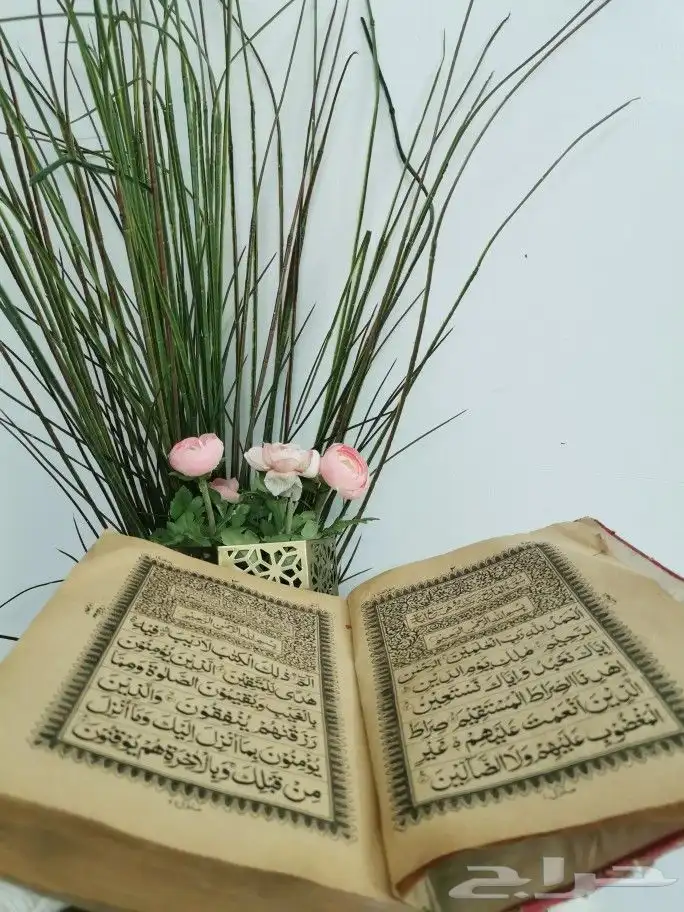 بسم الله الرحمن الرحيم
الحمد لله رب العلمين الرحمن
الرحيم ملك يوم الدين
اياك نعبد و اياك نستعين
اهدنا الصراط المستقيم صراط
الذين انعمت عليهم غير
المغضوب عليهم ولا الضالين
بسم الله الرحمن الرحيم
الم ذلك الكتب لا ريب فيه
هدى للمتقين الذين يؤمنون
بالغيب ويقيمون الصلوة ومما
رزقنهم ينفقون والذين
يؤمنون بما انزل اليك وما انزل
من قبلك وبالاخرة هم يوقنون
حراج